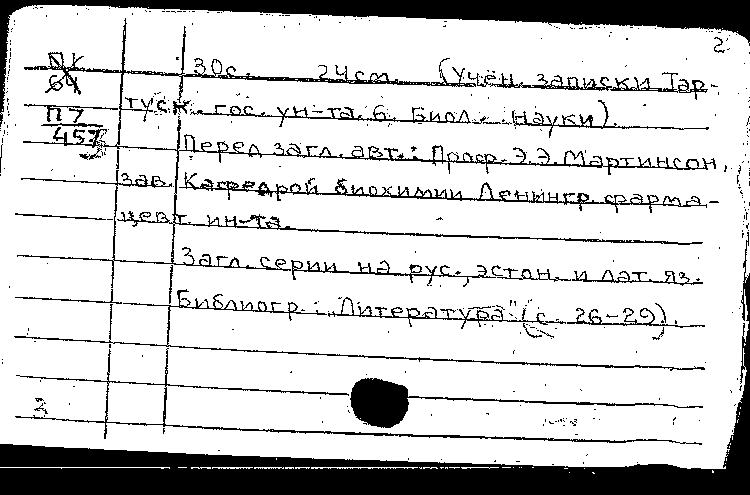 2
30с. 24см. (Учен. записки Тар-
туск. гос. ун-та. 6. Биол. науки).
П7
457
Перед загл. авт.: Проф. Э.Э. Мартинсон,
зав. Кафедрой биохимии Ленингр. фарма-
цевт. ин-та.
Загл. серии на рус., эстон. и лат. яз.
Библиогр.: „Литература" (с. 26-29).